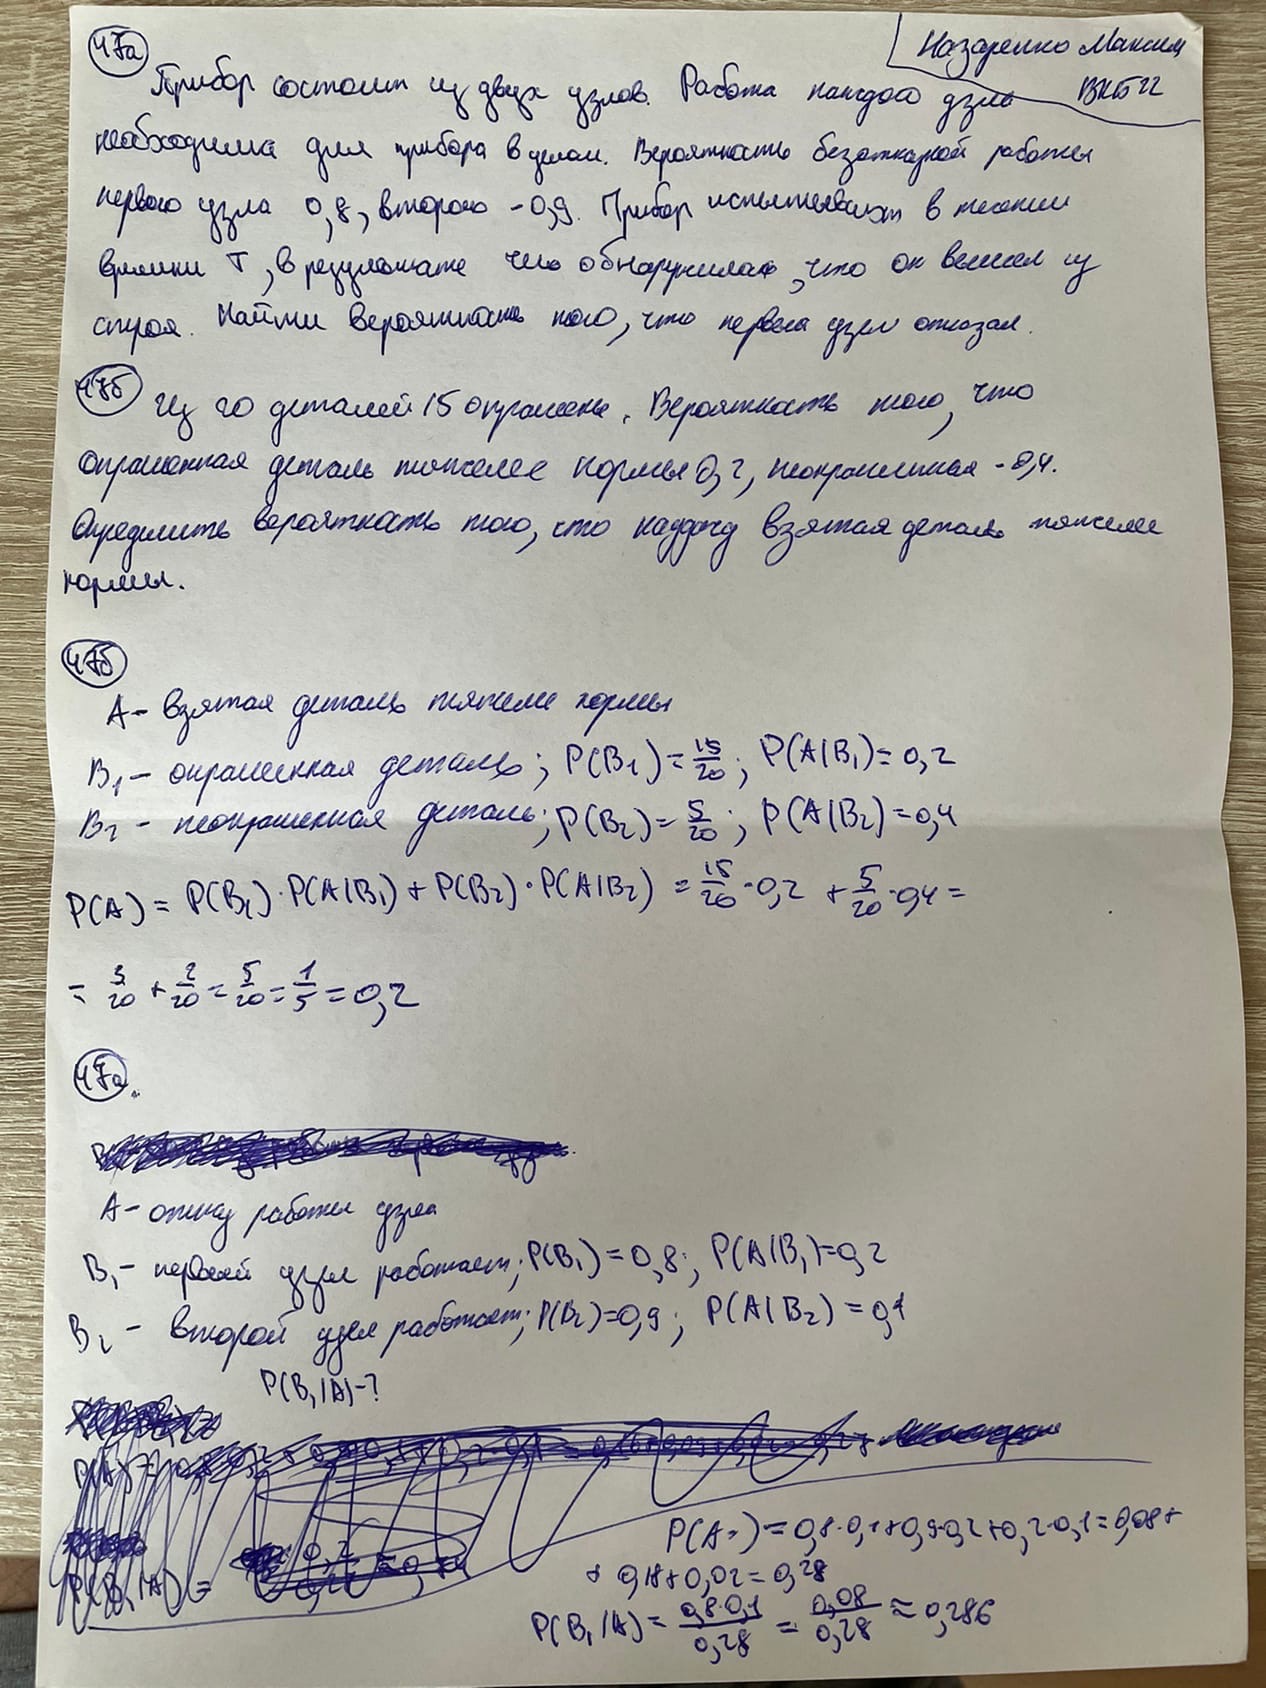 47а
Назаренко Максим
ВКБ22
Прибор состоит из двух узлов. Работа каждого узла
необходима для прибора в целом. Вероятность безотказной работы
первого узла 0,8, второго - 0,9. Прибор испытывался в течении
времени T, в результате чего обнаружилось, что он вышел из
строя. Найти вероятность того, что первый узел отказал.
47б
Из 20 деталей 15 окрашены. Вероятность того, что
окрашенная деталь тяжелее нормы 0,2, неокрашенная - 0,4.
Определить вероятность того, что наудачу взятая деталь тяжелее
нормы.
47б
A - взятая деталь тяжелее нормы
B₁ - окрашенная деталь; P(B₁) = 15/20; P(A|B₁) = 0,2
B₂ - неокрашенная деталь; P(B₂) = 5/20; P(A|B₂) = 0,4
P(A) = P(B₁)·P(A|B₁) + P(B₂)·P(A|B₂) = 15/20·0,2 + 5/20·0,4 =
= 3/20 + 2/20 = 5/20 = 1/5 = 0,2
47а.
A - отказ работы узла
B₁ - первый узел работает; P(B₁) = 0,8; P(A|B₁) = 0,2
B₂ - второй узел работает; P(B₂) = 0,9; P(A|B₂) = 0,1
P(B₁|A) - ?
P(A) = 0,8·0,1 + 0,9·0,2 + 0,2·0,1 = 0,08 +
+ 0,18 + 0,02 = 0,28
P(B₁|A) = 0,8·0,1/0,28 = 0,08/0,28 ≈ 0,286